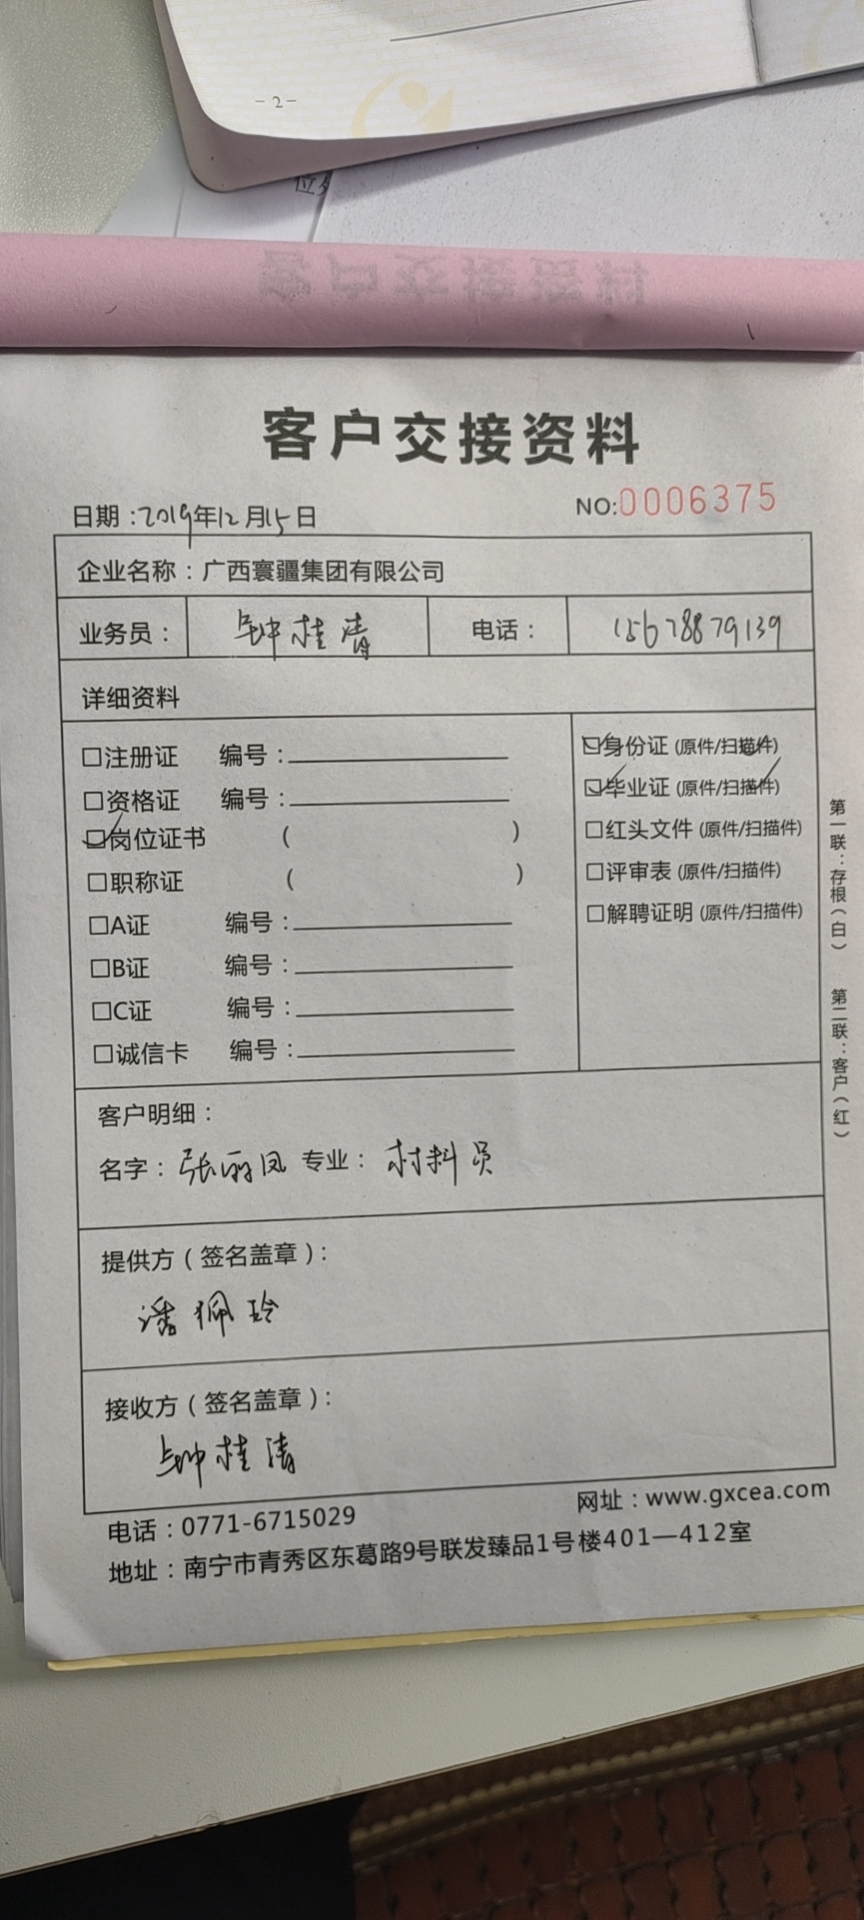 - 2 -
客户交接资料
日期：2019年12月15日
NO:0006375
企业名称：广西寰疆集团有限公司
业务员： 钟桂清 电话： 15678879139
详细资料
□注册证 编号：
□资格证 编号：
☑岗位证书 ( )
□职称证 ( )
□A证 编号：
□B证 编号：
□C证 编号：
□诚信卡 编号：
☑身份证 (原件/扫描件)
☑毕业证 (原件/扫描件)
□红头文件 (原件/扫描件)
□评审表 (原件/扫描件)
□解聘证明 (原件/扫描件)
第一联：存根（白） 第二联：客户（红）
客户明细：
名字：张丽凤 专业：材料员
提供方（签名盖章）：
潘佩玲
接收方（签名盖章）：
钟桂清
电话：0771-6715029
网址：www.gxcea.com
地址：南宁市青秀区东葛路9号联发臻品1号楼401—412室